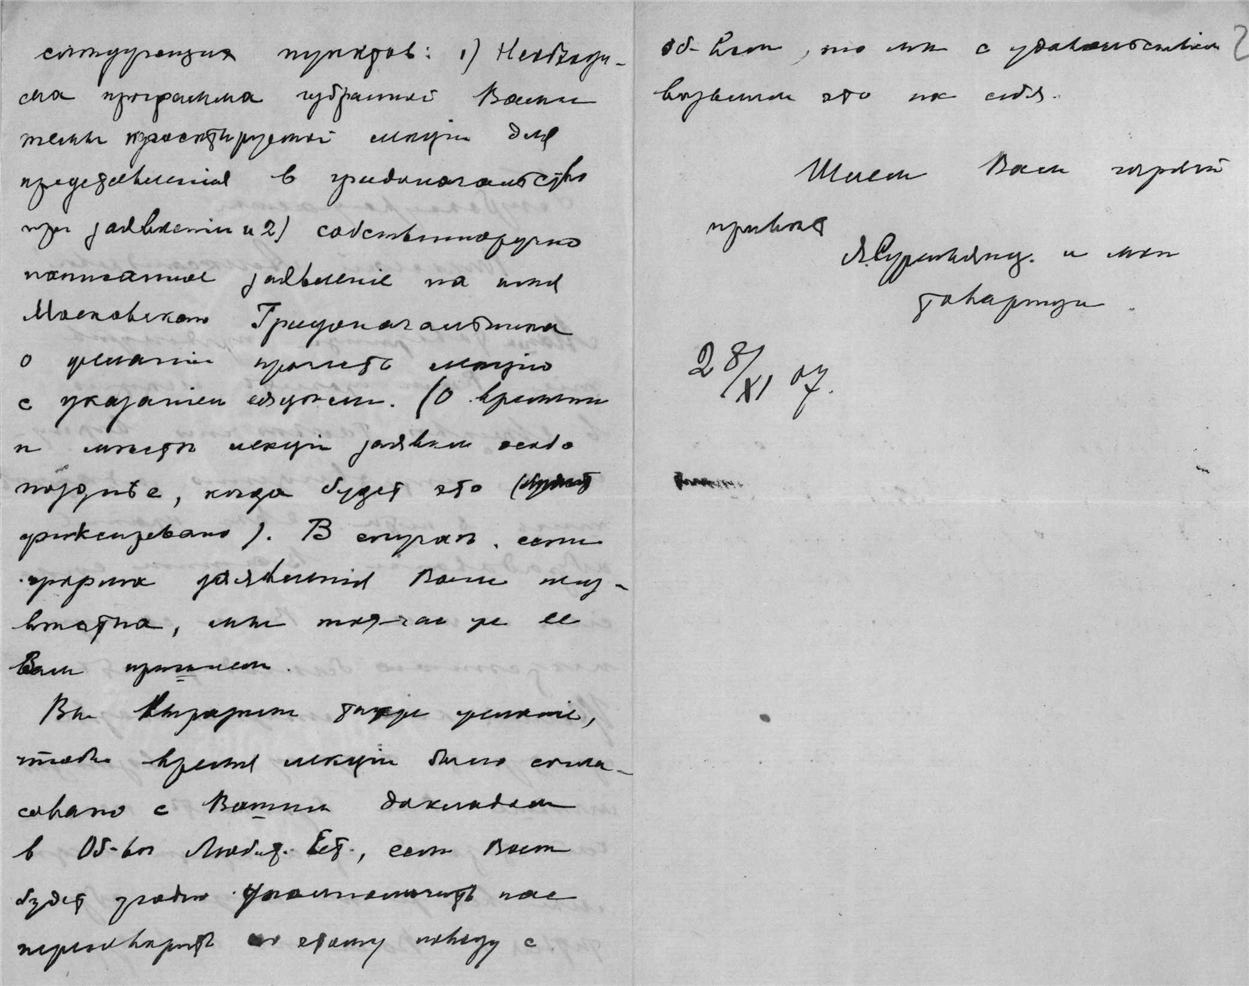 следующих пунктов: 1) Необходи-
ма программа избранной Вами
темы проектируемой лекции для
представленія в градоначальство
при заявленіи и 2) собственноручно
написанное заявленіе на имя
Московского Градоначальника
о желаніи прочесть лекцію
с указаніем . (О времени
и месте лекціи заявим особо
позднѣе, когда будет это
фиксировано). В случае, если
форма заявленія Вам неиз-
вестна, мы тотчас же ее
Вам пришлем.
Вы выразили также желаніе,
чтобы время лекціи было согла-
совано с Вашим докладом
в Об-во Любит. Ест., если Вам
будет угодно уполномочить нас
переговорить по этому поводу с
об-вом, то мы с удовольствіем
возьмем это на себя.
Шлем Вам горячій
привет
и мои
товарищи.
28/XI 07.
2